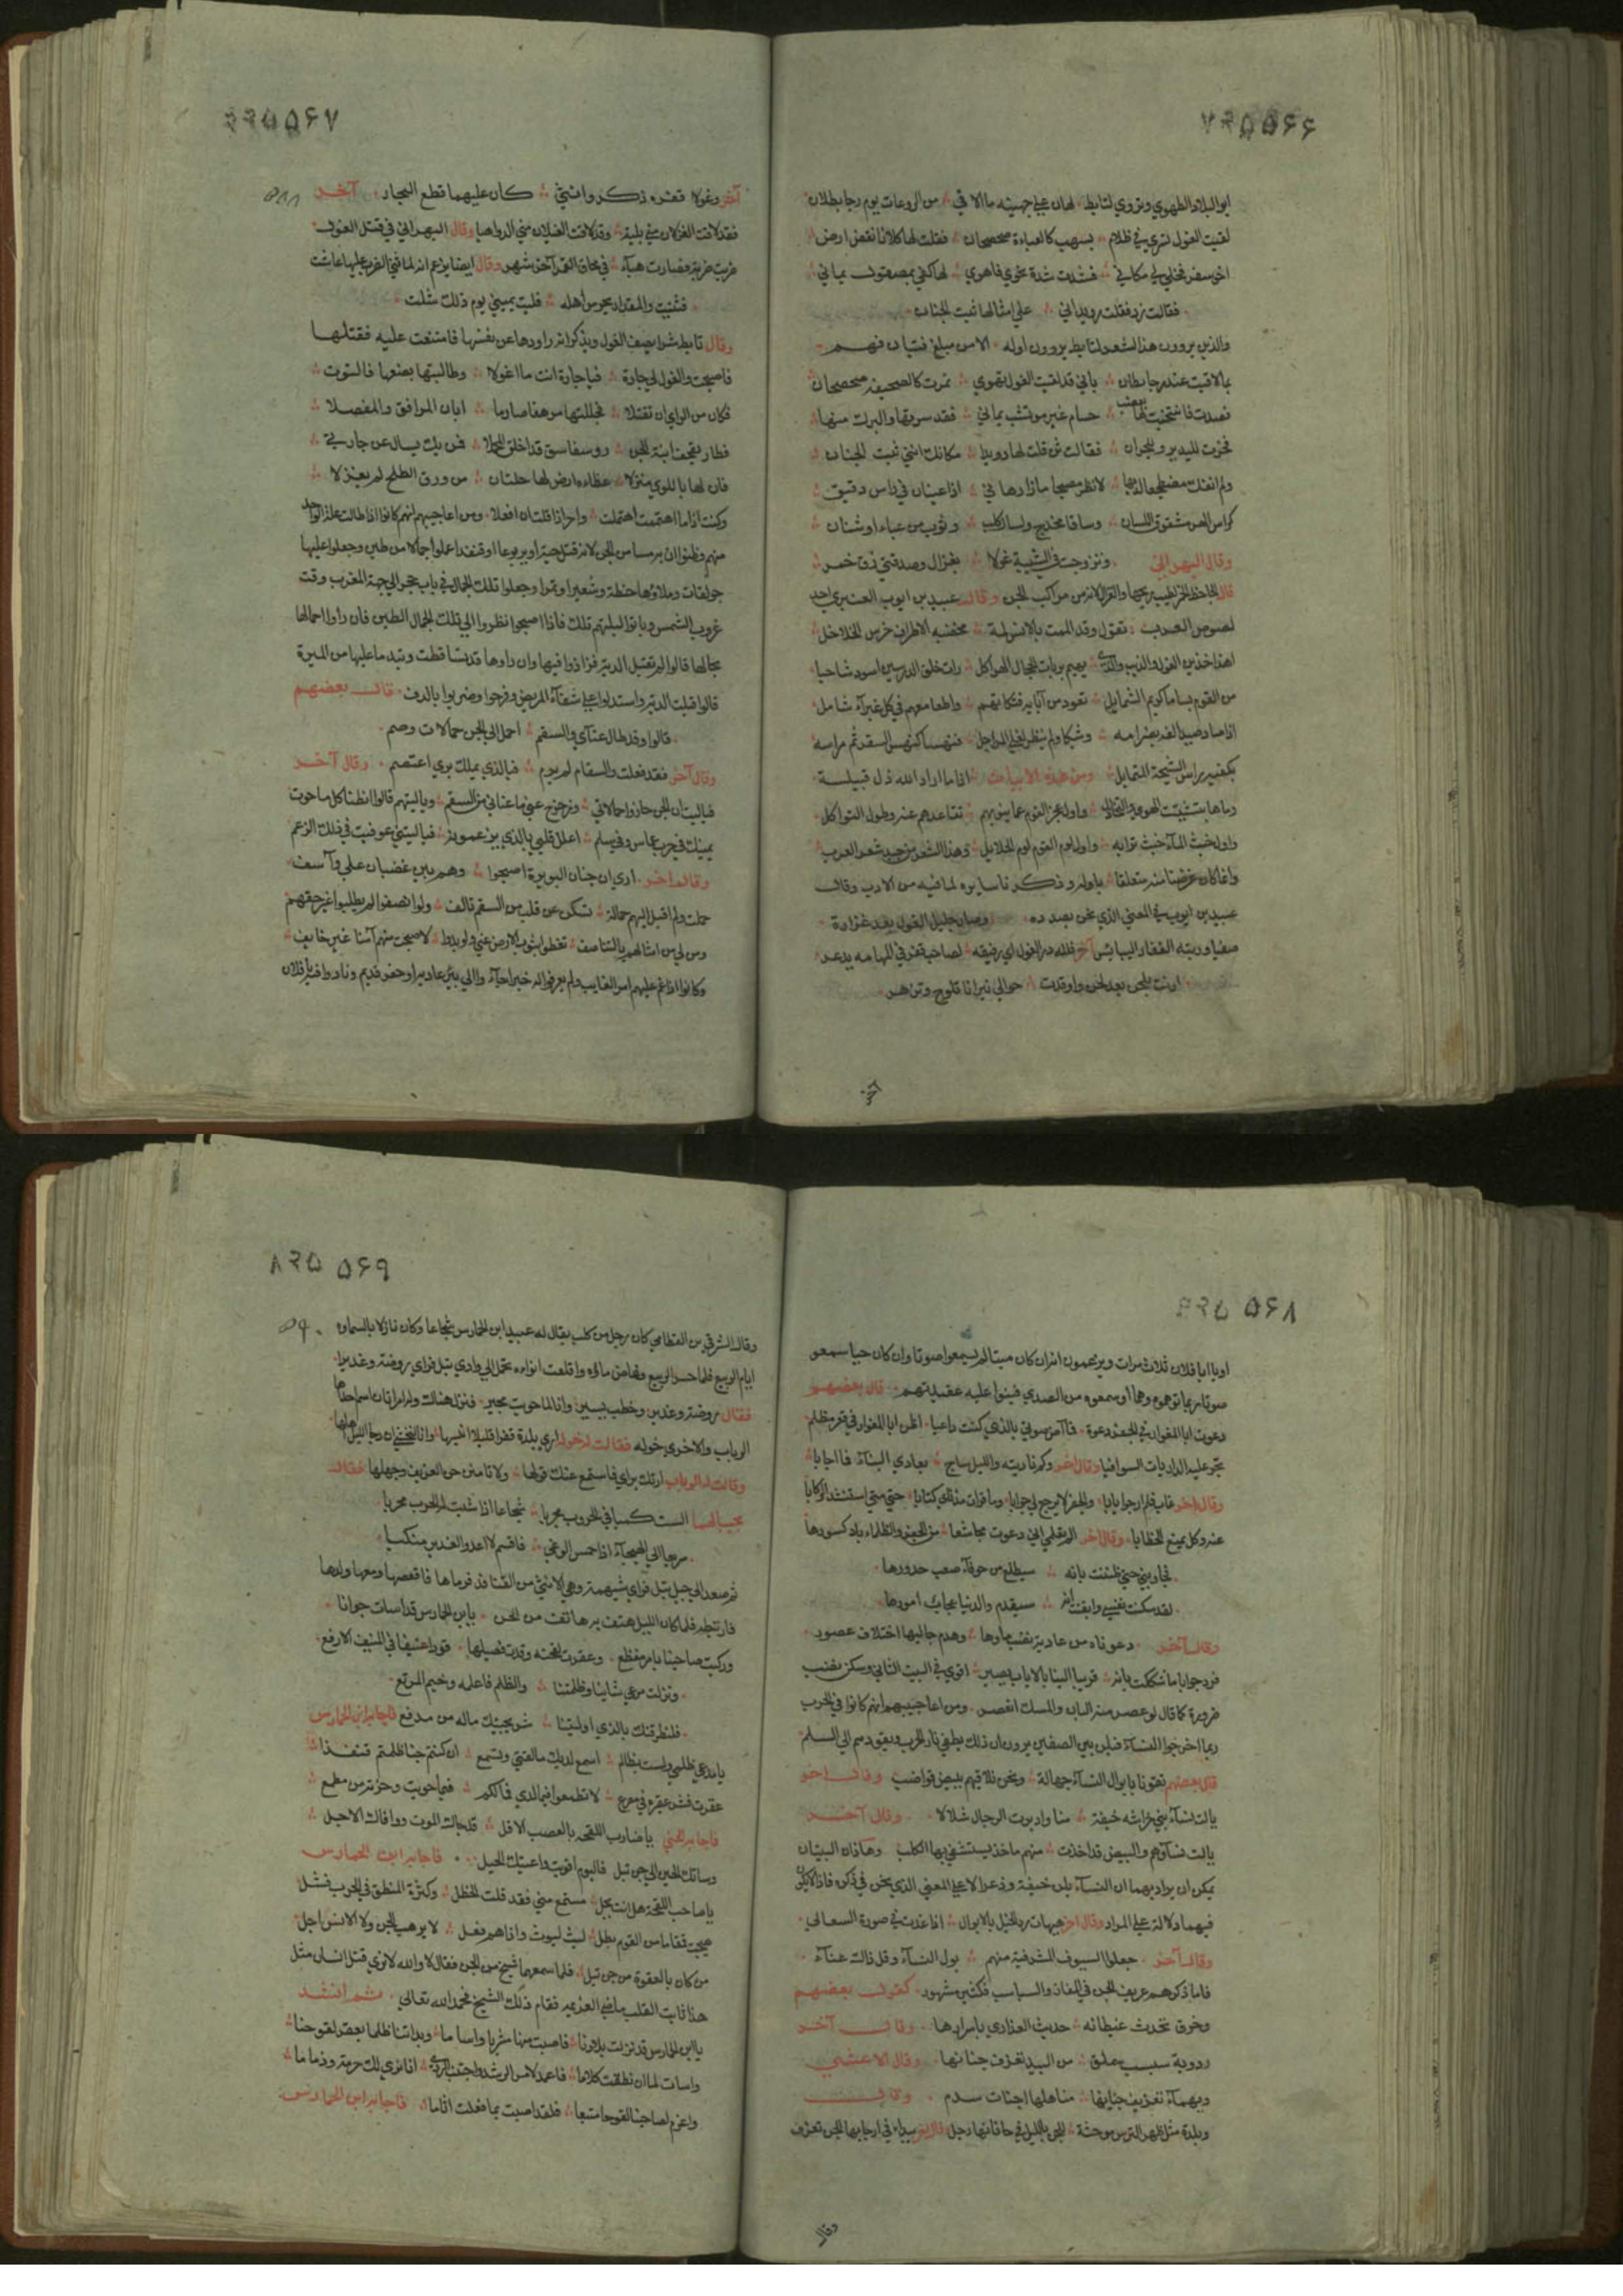 ۵۶۶
ابو البلاد الطهوي وتروي لتابط لهان علي جهينه ما الاقي من الروعات يوم رحا بطان
لقيت الغول تسري في ظلام بسهب كالعباءة صحصحان فقلت لها كلانا نقض ارض
اخو سفر فخلي لي مكاني فشدت شدة نحوي فاهوي لها كفي بمصقول يماني
فقالت زد فقلت رويداني علي امثالها ثبت الجنان
والذين يروون هذا الشعر لتابط يروون اوله الا من مبلغ فتيان فهم
بما لاقيت عند رحا بطان باني قد لقيت الغول تهوي بمرت كالصحيفه صحصحان
فصدت فانتحيت لها بعضب حسام غير موتشب يماني فقد سروتها والبرك منها
فخرت لليدين وللجران فقالت ثن قلت لها رويدا مكانك انني ثبت الجنان
ولم انفك مضطجعا لديها لانظر مصبحا ماذا دهاني اذا عينان في راس دقيق
كراس الهر مشقوق اللسان وساقا مخدج ولسان كلب وثوب من عباء او شنان
وقال البهراني وتزوجت في الشبيبة غولا بغزال وصدقتي زق خمر
قال الجاحظ وقال عبيد بن ايوب العنبري احد
لصوص العرب تقول وقد الممت بالانس لمة مخضبه الاطراف خرس الخلاخل
اهذا خدين الغول والذيب والذي يهيم بربات الحجال الهراكل رات خلق الدرسين اسود شاحبا
من القوم بساما كريم الشمايل تعود من آبايه فتكاتهم واطعامهم في كل غبراء شامل
اذا صاد صيدا لفه بضرامه وشيكا ولم ينظر لغلي المراجل فنهسا كنهس الصقر ثم مراسه
بكفيه راس الشيخة المتمايل ومن هذه الابيات اذا ما اراد الله ذل قبيلة
رماها بتشتيت الهوي والتخاذل واول عجز القوم عما ينوبهم تقاعدهم عنه وطول التواكل
واول خبث الماء خبث ترابه واول لوم القوم لوم الحلايل وهذا الشعر من جيد شعر العرب
وانما كان غرضنا منه متعلقا باوله وذكرنا سايره لما فيه من الادب وقال
عبيد بن ايوب في المعني الذي نحن بصدده وصار خليل الغول بعد عداوة
صفيا وربته القفار البسابس آخر فلله در الغول اي رفيقه لصاحب قفر في المهامه يذعر
ارنت بلحن بعد لحن واوقدت حوالي نيرانا تلوح وتزهر
آخر
۵۶۷
آخر وغولا قفره ذكر وانثي كان عليهما قطع البجاد آخر
فقد لاقت الغزلان مني بلية وقد لاقت الغيلان مني الدواهيا وقال البهراني في قتل الغول
ضربت ضربة فصارت هباء في محاق القمر آخر شهر وقال ايضا يزعم انه لما ثني الضرب عليها عاشت
فثنيت والمقدار يحرس اهله فليت يميني يوم ذلك شلت
وقال تابط شرا يصف الغول ويذكر انه راودها عن نفسها فامتنعت عليه فقتلها
فاصبحت والغول لي جارة فيا جارة انت ما اغولا وطالبتها بضعها فالتوت
فكان من الراي ان تقتلا فجللتها مرهفا صارما ابان المرافق والمفصلا
فطار بقحف ابنة الجن فمن يك يسال عن جارتي
فان لها باللوي منزلا عظاءه ارض لها حلتان من ورق الطلح لم تغزلا
وكنت اذا ما هممت اهتبلت واحر اذا قلت ان افعلا ومن اعاجيبهم انهم كانوا اذا طالت علة الواحد
منهم وظنوا ان به مسا من الجن لانه قتل حية او يربوعا او قنفذا عملوا جمالا من طين وجعلوا عليها
جوالقات وملاؤها حنطة وشعيرا وتمرا وجعلوا تلك الجمال في باب جحر الي جهة المغرب وقت
غروب الشمس وباتوا ليلتهم تلك فاذا اصبحوا نظروا الي تلك الجمال الطين فان راوا انها
بحالها قالوا لم تقبل الدية فزادوا فيها وان راوها قد تساقطت وتبدد ما عليها من الميرة
قالوا قبلت الدية واستدلوا علي شفاء المريض وفرحوا وضربوا بالدف قال بعضهم
قالوا وقد طال عناي والسقم احمل الي الجن حمالات وضم
وقال آخر فقد فعلت والسقام لم يرم فبالذي يملك بري اعتصم وقال آخر
فيا ليت ان الجن جازوا حمالتي وزحزح عني ما عناني من السقم وياليتهم قالوا انطنا كل ما حوت
يمينك في حرب عماس وفي سلم اعلل قلبي بالذي يزعمونه فيا ليتني عوفيت في ذلك الزعم
وقال آخر اري ان جنان النويرة اصبحوا وهم بين غضبان علي وآسف
حملت ولم اقبل اليهم حمالة تسكن عن قلب من السقم تالف ولو انصفوا لم يطلبوا غير حقهم
ومن لي من امثالهم بالتناصف تغطوا بثوب الارض عني ولو بدوا لاصبحت منهم آمنا غير خايف
وكانوا اذا غم عليهم امر الغايب ولم يعرفوا له خبرا جاءوا الي بير عادية او حفر قديم ونادوا فيه يا فلان
۵۶۸
او يا ابا فلان ثلاث مرات ويزعمون انه ان كان ميتا لم يسمعوا صوتا وان كان حيا سمعو
صوتا ربما توهموه وهما او سمعوه من الصدي فبنوا عليه عقيدتهم قال بعضهم
دعوت ابا المغوار في الجفر دعوة فما آض صوتي بالذي كنت داعيا اظن ابا المغوار في قعر مظلم
تجر عليه الذاريات السوافيا وقال آخر وكم ناديته والليل ساج بعادي البئار فما اجابا
وقال آخر غاب فلم ارجو ايابا والجفر لا يرجع لي جوابا وما قرات مذ ناي كتابا حتي متي استنشد الركابا
عنه وكل يمنع الخطابا وقال آخر الم تعلمي اني دعوت مجاشعا من الجفر والظلماء باد كسورها
فجاوبني حتي ظننت بانه سيطلع من جوفاء صعب حدورها
لقد سكنت نفسي وايقنت انه سيقدم والدنيا عجاب امورها
وقال آخر دعوناه من عادية نضب ماوها وهدم جاليها اختلاف عصور
فرد جوابا ما شككت بانه قريبا الينا بالاياب يصير اقوي في البيت الثاني وسكن نضب
ضرورة كما قال لو عصر منه البان والمسك انعصر ومن اعاجيبهم انهم كانوا في الحرب
ربما اخرجوا النساء فيبلن بين الصفين يرون ان ذلك يطفي نار الحرب ويقودهم الي السلم
قال بعضهم لقونا بابوال النساء جهالة ونحن نلاقيهم ببيض قواضب وقال آخر
بالت نساء بني خراشه خيفة منا وادبرت الرجال شلالا وقال آخر
بالت نساؤهم والبيض قد اخذت منهم ماخذ يستشفي بها الكلب وهاذان البيتان
يمكن ان يراد بهما ان النساء يبلن خيفة وذعرا لا علي المعني الذي نحن في ذكره فاذا لا يكون
فيهما دلالة علي المراد وقال آخر هيهات رد الخيل بالابوال اذا غدت في صورة السعالي
وقال آخر جعلوا السيوف المشرفية منهم بول النساء وقل ذاك غناء
فاما ذكرهم عزيف الجن في المفاوز والسباسب فكثير مشهور كقول بعضهم
وخرق تحدث غيطانه حديث العذاري باسرارها وقال آخر
ودوية سبسب سملق من البيد تعزف جنانها وقال الاعشي
وبهماء تعزف جنانها مناهلها اجنات سدم وقال
وبلدة مثل ظهر الترس موحشة للجن بالليل في حافاتها زجل وقال آخر بيداء في ارجايها الجن تعزف
وقال
۵۶۹
وقال الشرقي بن القطامي كان رجل من كلب يقال له عبيد ابن الحمارس شجاعا وكان نازلا بالسماوه
ايام الربيع فلما حسر الربيع وقل ماؤه واقلعت انواءه تحمل الي وادي تبل فراي روضة وغديرا
فقال روضة وغدير وخطب يسير وانا لما حويت مجير فنزل هناك وله امراتان اسم احداهما
الرباب والاخري خوله فقالت له خوله اري بلدة قفرا قليلا انيسها وانا لنخشي ان دجا الليل اهلها
وقالت له الرباب ارتك براي فاستمع عنك قولها ولا تامنن جن العزيف وجهلها فقال
مجيبا لهما الست كميا في الحروب مجربا شجاعا اذا شبت له الحرب محربا
سريعا الي الهيجاء اذا حمس الوغي فاقسم لا اعدو الغدير منكبا
ثم صعد الي جبل تبل فراي شيهمة وهي الانثي من القنافذ فرماها فاقعصها ومعها ولدها
فارتبطه فلما كان الليل هتف به هاتف من الجن يا بن الحمارس قد اسات جوارنا
وركبت صاحبنا بامر مفظع وعقرت لقحته وقدت فصيلها قودا عنيفا في المنيف الارفع
ونزلت مرعي شاينا وظلمتنا والظلم فاعله وخيم المرتع
فلنطرقنك بالذي اوليتنا شر يجيئك ماله من مدفع فاجابه ابن الحمارس
يا مدعي ظلمي ولست بظالم اسمع لديك مقالتي وتسمع ان كنتم جنا ظلمتم قنفذا
عقرت فشر عقيرة في مصرع لا تطمعوا فيما لدي فما لكم فيما حويت وحزته من مطمع
فاجابه الجني يا ضارب اللقحه بالعضب الافل قد جاءك الموت ووافاك الاجل
وساقك الحين الي جن تبل فاليوم اقويت واعيتك الحيل فاجابه ابن الحمارس
يا صاحب اللقحة هل انت بجل مستمع مني فقد قلت الخطل وكثرة المنطق في الحرب فشل
هيجت قمقاما من القوم بطل ليث ليوث واذا هم فعل لا يرهب الجن ولا الانس اجل
من كان بالعقوة من جن تبل فلما سمعهما شيخ من الجن فقال لا والله لا نري قتل انسان مثل
هذا ثابت القلب ماضي العزيمه فقام ذلك الشيخ فحمد الله تعالي ثم انشد
يا ابن الحمارس قد نزلت بلادنا فاصبت منها مشربا ومناما وبداتنا ظلما بعقر لقوحنا
واسات لما ان نطقت كلاما فاعمد لامر الرشد واجتنب الردي انا نري لك حرمة وذماما
واغرم لصاحبنا لقوحا متبعا فلقد اصبت بما فعلت اثاما فاجابه ابن الحمارس